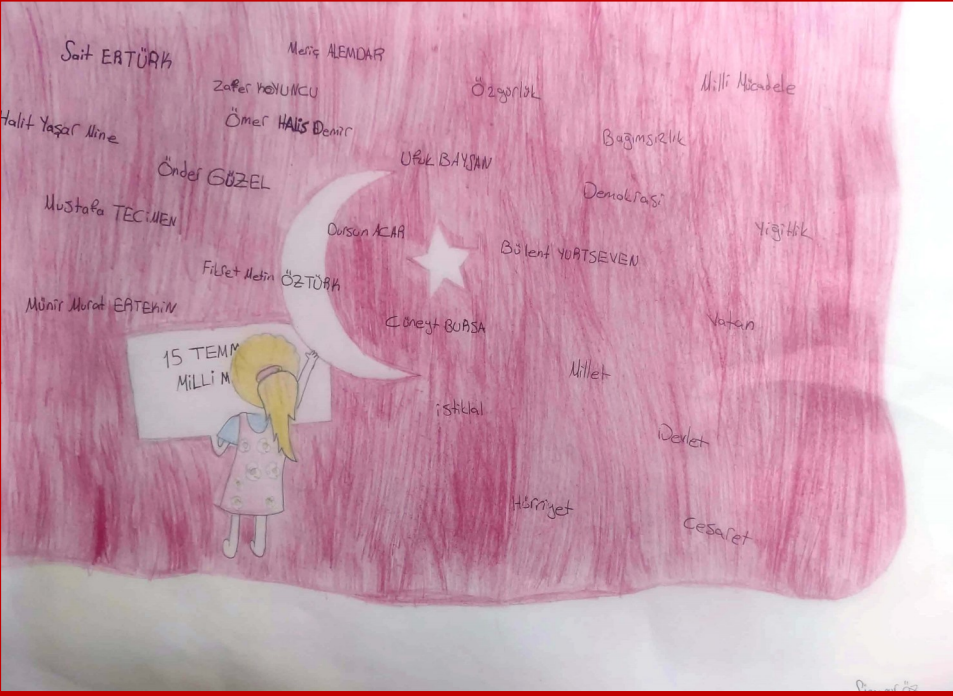 Sait ERTÜRK
Meriç ALEMDAR
Zafer KOYUNCU
Özgürlük
Milli Mücadele
Halit Yaşar Mine
Ömer HALİS Demir
Bağımsızlık
Ufuk BAYSAN
Önder GÜZEL
Demokrasi
Mustafa TECİMEN
Dursun ACAR
Yiğitlik
Bülent YURTSEVEN
Fikret Metin ÖZTÜRK
Münir Murat ERTEKİN
Cüneyt BURSA
Vatan
15 TEMM
MİLLİ M
Millet
istiklal
Devlet
Hürriyet
Cesaret